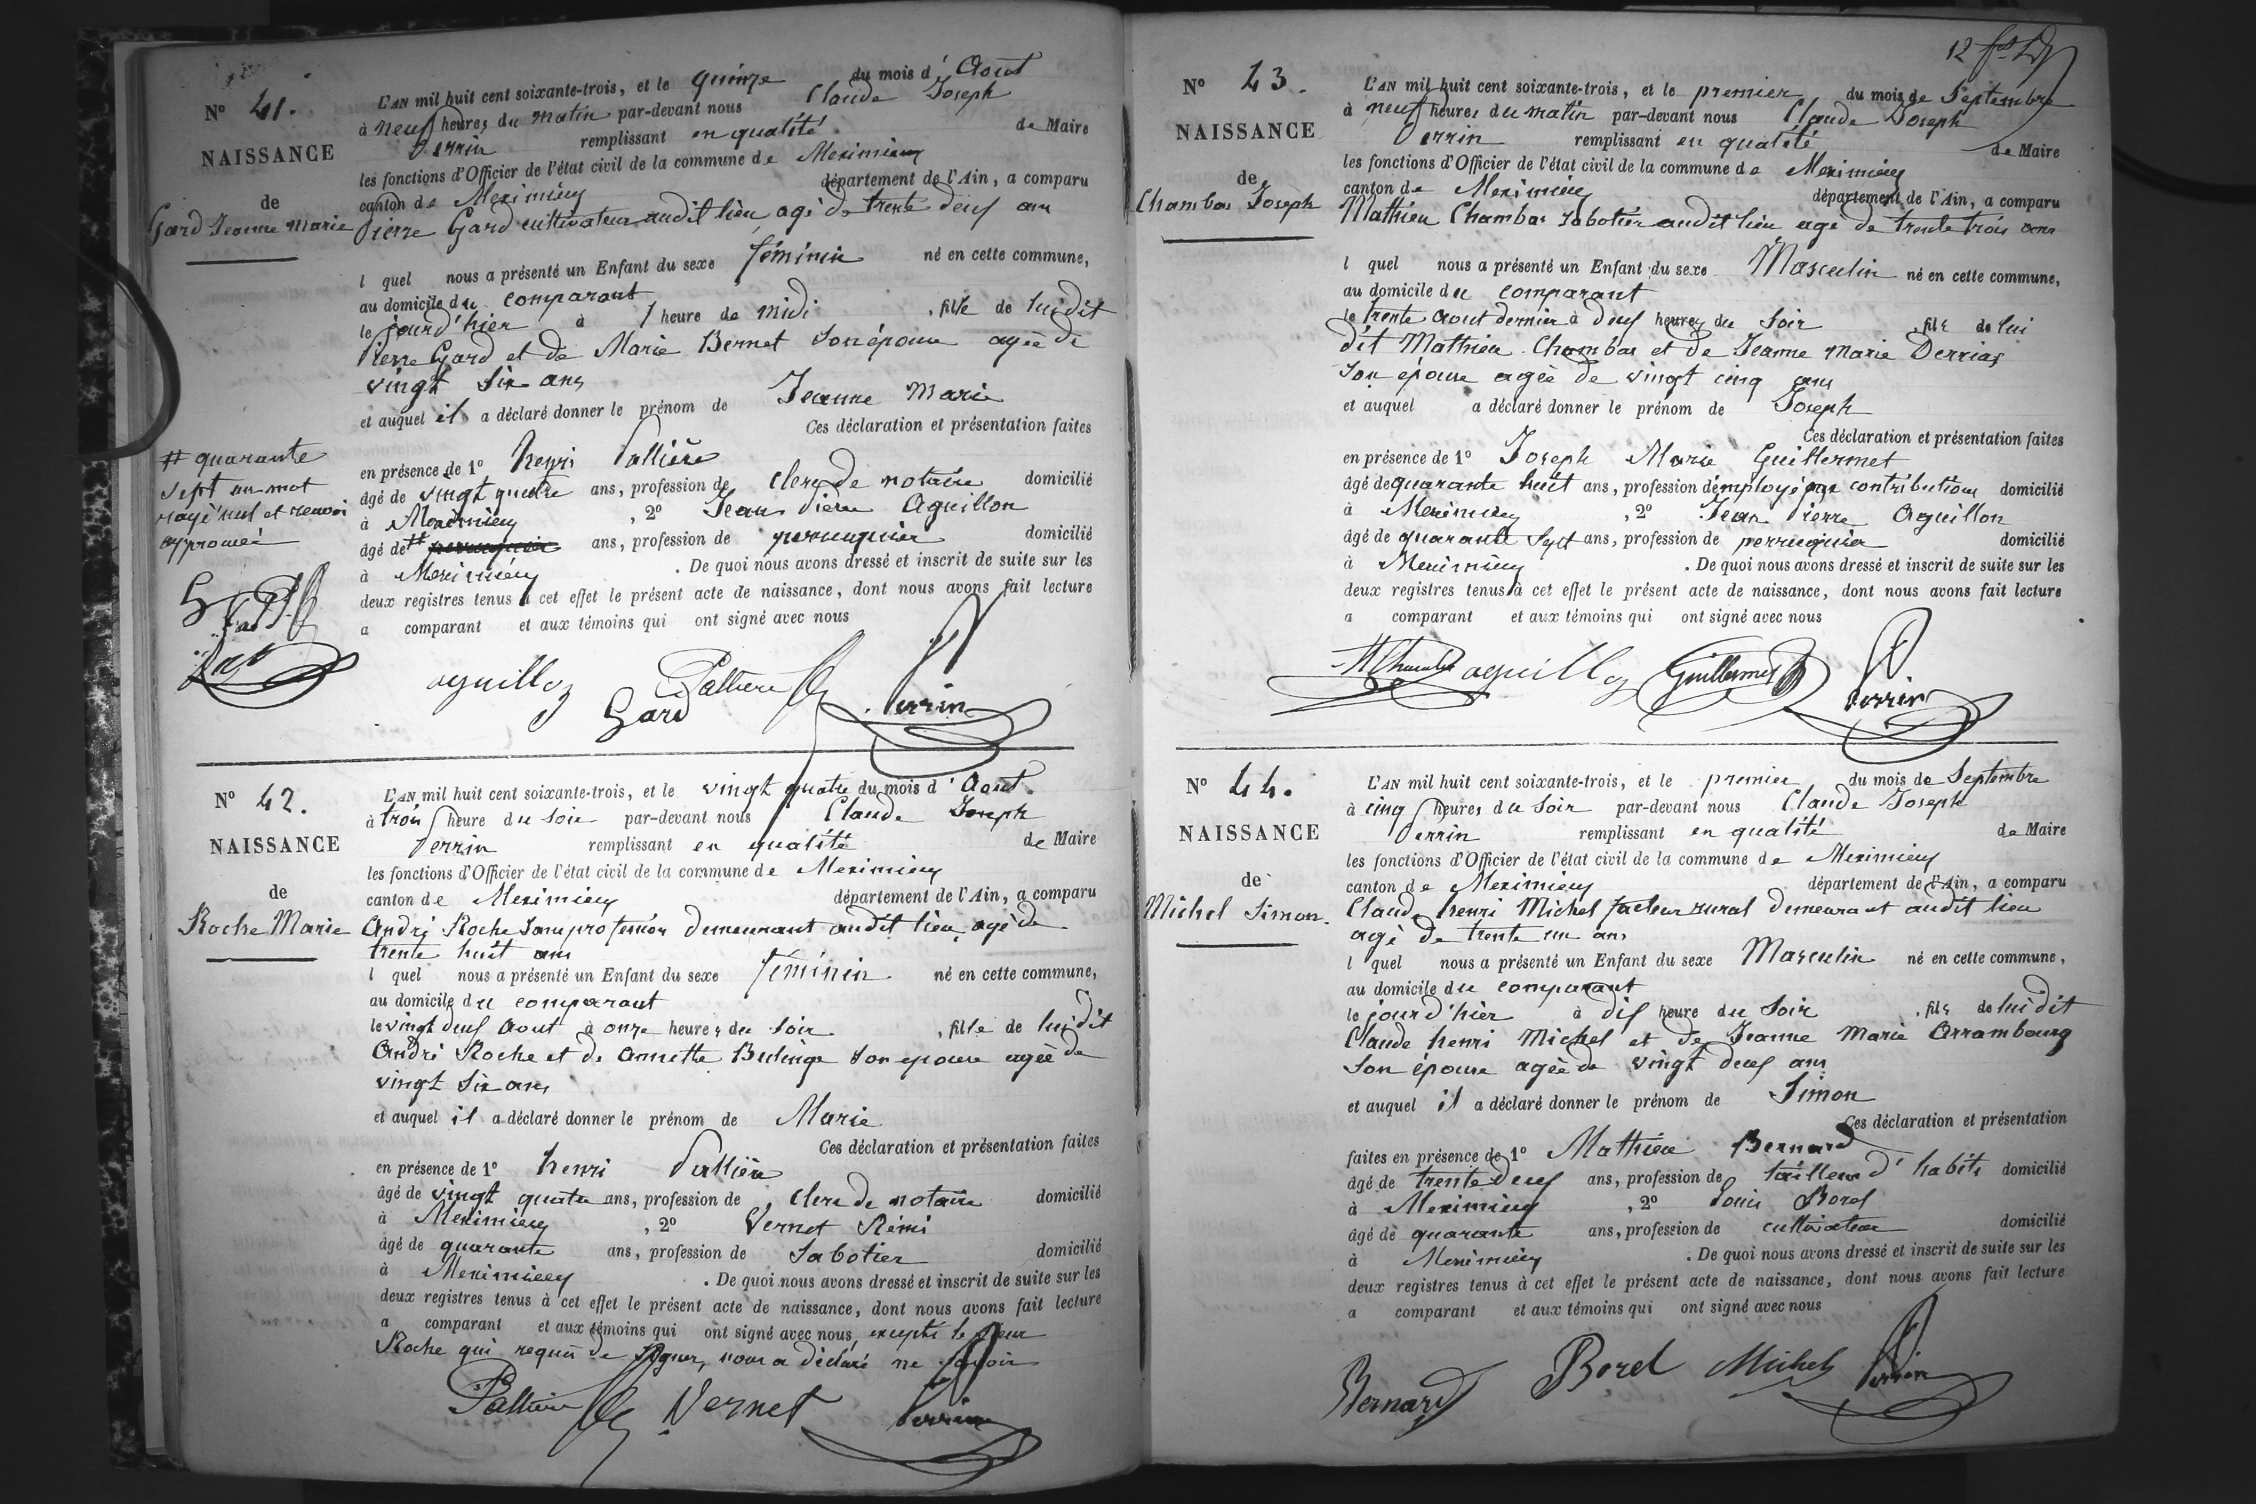 N° 41.
NAISSANCE
de
Gard Jeanne Marie
L'AN mil huit cent soixante-trois, et le quinze du mois d'Aout
à neuf heures du matin par-devant nous Claude Joseph
Perrin remplissant en qualité de Maire
les fonctions d'Officier de l'état civil de la commune de Meximieux
canton de Meximieux département de l'Ain, a comparu
Pierre Gard cultivateur audit lieu agé de trente deux ans
l quel nous a présenté un Enfant du sexe féminin né en cette commune,
au domicile du comparant
le jourd'hier à 1 heure de midi, fille de lui dit
Pierre Gard et de Marie Bernet son épouse agée de
vingt six ans
et auquel il a déclaré donner le prénom de Jeanne Marie
Ces déclaration et présentation faites
en présence de 1° henri Pallière
âgé de vingt quatre ans, profession de clerc de notaire domicilié
à Meximieux, 2° Jean Pierre Aguillon
âgé de # ans, profession de perruquier domicilié
à Meximieux. De quoi nous avons dressé et inscrit de suite sur les
deux registres tenus à cet effet le présent acte de naissance, dont nous avons fait lecture
a comparant et aux témoins qui ont signé avec nous
# quarante
sept un mot
rayé nul et renvoi
approuvé
aguillon Gard Pallière Perrin
N° 42.
NAISSANCE
de
Roche Marie
L'AN mil huit cent soixante-trois, et le vingt quatre du mois d'Aout
à trois heure du soir par-devant nous Claude Joseph
Perrin remplissant en qualité de Maire
les fonctions d'Officier de l'état civil de la commune de Meximieux
canton de Meximieux département de l'Ain, a comparu
André Roche sans profession demeurant audit lieu, agé de
trente huit ans
l quel nous a présenté un Enfant du sexe féminin né en cette commune,
au domicile du comparant
le vingt deux Aout à onze heures du soir, fille de lui dit
André Roche et de Annette Bulinge son epouse agée de
vingt six ans
et auquel il a déclaré donner le prénom de Marie
Ces déclaration et présentation faites
en présence de 1° henri Pallière
âgé de vingt quatre ans, profession de clerc de notaire domicilié
à Meximieux, 2° Vernet Rémi
âgé de quarante ans, profession de Sabotier domicilié
à Meximieux. De quoi nous avons dressé et inscrit de suite sur les
deux registres tenus à cet effet le présent acte de naissance, dont nous avons fait lecture
a comparant et aux témoins qui ont signé avec nous, excepté le sieur
Roche qui requis de signer, nous a déclaré ne savoir
Pallière Vernet Perrin
12
N° 43.
NAISSANCE
de
Chambas Joseph
L'AN mil huit cent soixante-trois, et le premier du mois de Septembre
à neuf heures du matin par-devant nous Claude Joseph
Perrin remplissant en qualité de Maire
les fonctions d'Officier de l'état civil de la commune de Meximieux
canton de Meximieux département de l'Ain, a comparu
Mathieu Chambas Sabotier audit lieu agé de trente trois ans
l quel nous a présenté un Enfant du sexe Masculin né en cette commune,
au domicile du comparant
le trente aout dernier à deux heures du soir, fils de lui
dit Mathieu Chambas et de Jeanne Marie Derrias
son épouse agée de vingt cinq ans
et auquel a déclaré donner le prénom de Joseph
Ces déclaration et présentation faites
en présence de 1° Joseph Marie Guillermet
âgé de quarante huit ans, profession d'employé aux contributions domicilié
à Meximieux, 2° Jean Pierre Aguillon
âgé de quarante Sept ans, profession de perruquier domicilié
à Meximieux. De quoi nous avons dressé et inscrit de suite sur les
deux registres tenus à cet effet le présent acte de naissance, dont nous avons fait lecture
a comparant et aux témoins qui ont signé avec nous
M Chambas aguillon Guillermet Perrin
N° 44.
NAISSANCE
de
Michel Simon
L'AN mil huit cent soixante-trois, et le premier du mois de Septembre
à cinq heures du soir par-devant nous Claude Joseph
Perrin remplissant en qualité de Maire
les fonctions d'Officier de l'état civil de la commune de Meximieux
canton de Meximieux département de l'Ain, a comparu
Claude henri Michel facteur rural demeurant audit lieu
agé de trente un ans
l quel nous a présenté un Enfant du sexe Masculin né en cette commune,
au domicile du comparant
le jourd'hier à dix heure du soir, fils de lui dit
Claude henri Michel et de Jeanne Marie Arrambourg
son épouse agée de vingt deux ans
et auquel il a déclaré donner le prénom de Simon
Ces déclaration et présentation
faites en présence de 1° Mathieu Bernard
âgé de trente deux ans, profession de tailleur d'habits domicilié
à Meximieux, 2° Louis Borel
âgé de quarante ans, profession de cultivateur domicilié
à Meximieux. De quoi nous avons dressé et inscrit de suite sur les
deux registres tenus à cet effet le présent acte de naissance, dont nous avons fait lecture
a comparant et aux témoins qui ont signé avec nous
Bernard Borel Michel Perrin